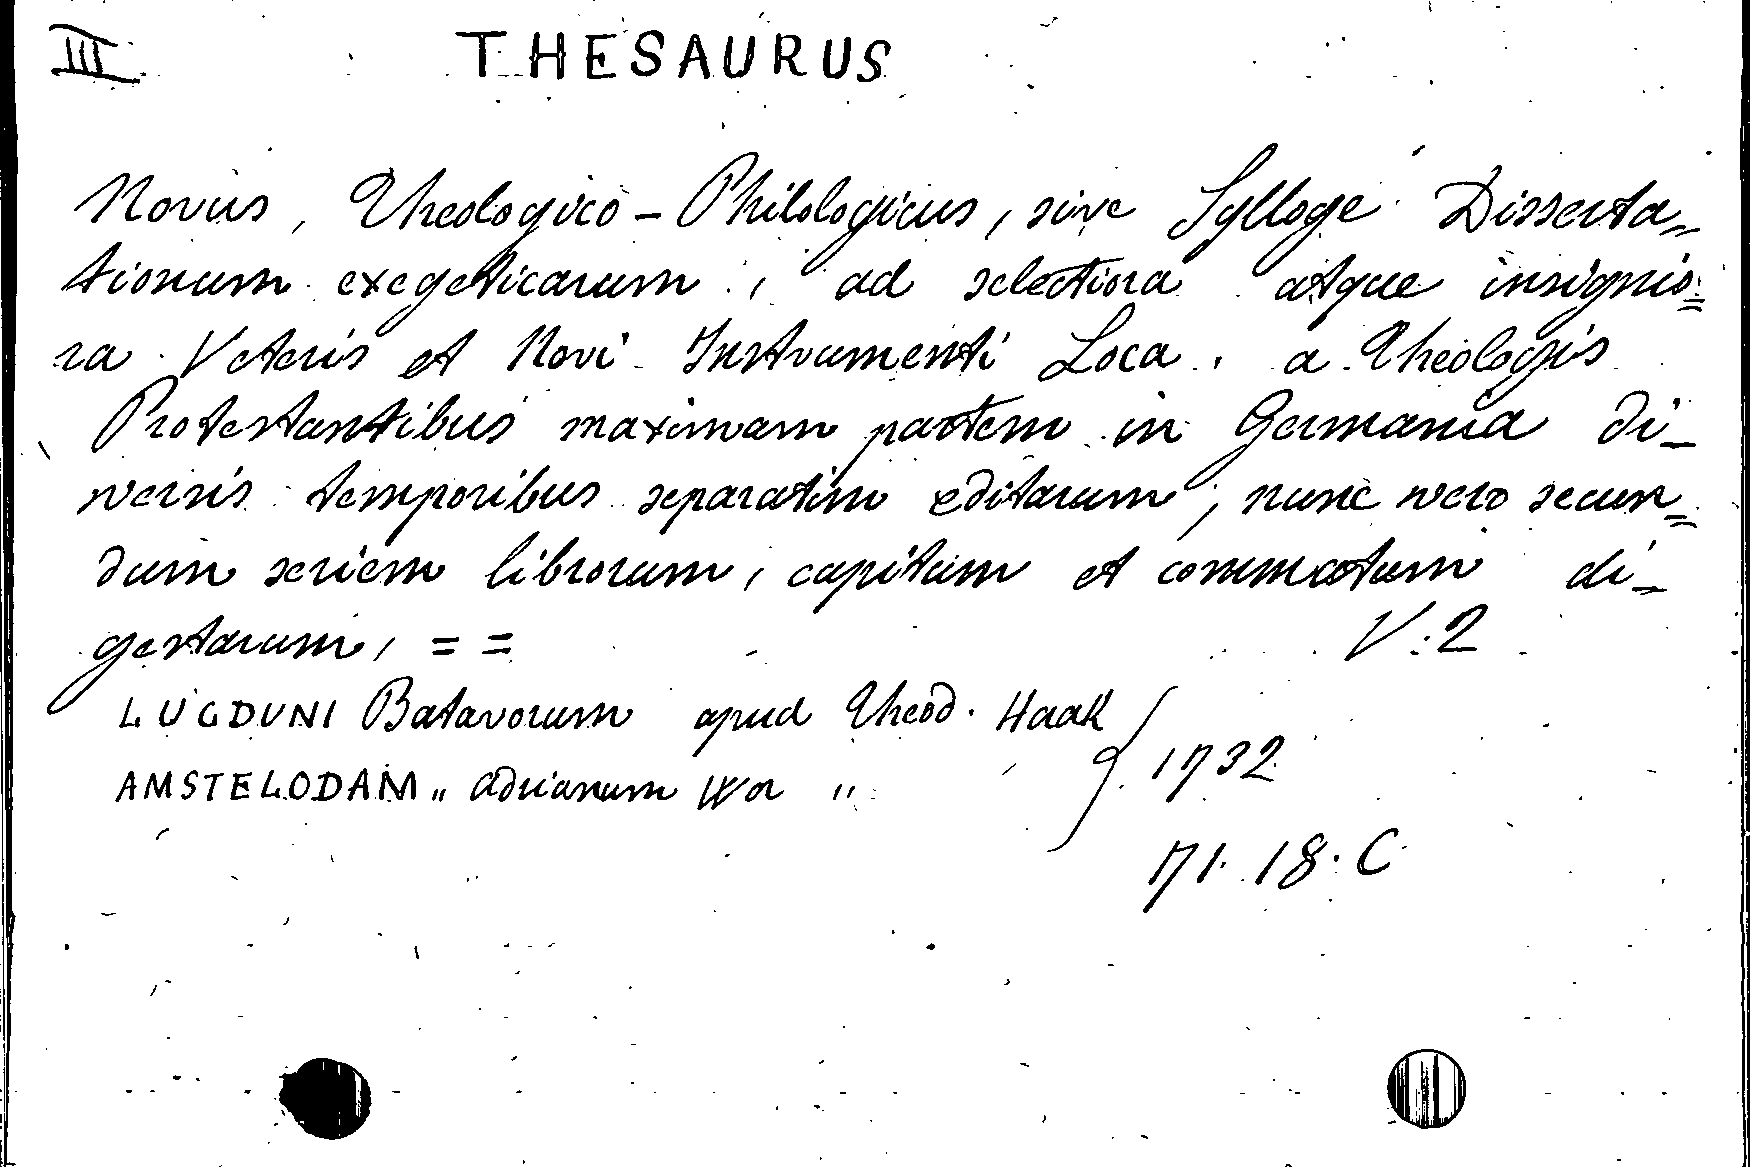 III THESAURUS
Novus, Theologico-Philologicus, sive Sylloge Disserta=
tionum exegeticarum, ad selectiora atque insignio=
ra Veteris et Novi Instrumenti Loca, a Theologis
Protestantibus maximam partem in Germania di-
versis temporibus separatim editarum; nunc vero secun=
dum seriem librorum, capitum et commatum di-
gestarum, = = V:2
LUGDUNI Batavorum apud Theod. Haak
AMSTELODAM „ Adrianum Wor „ } 1732
71.18.C